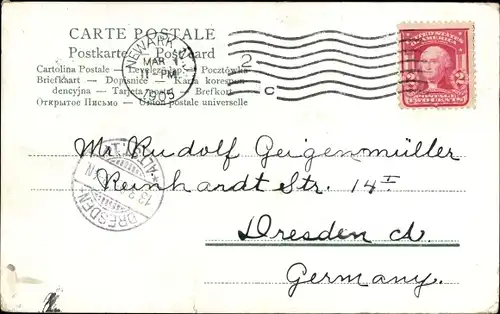 CARTE POSTALE
Postkarte — Postcard
Cartolina Postale — Levelező-lap. — Pocztówka
Briefkaart — Dopisnice — Karta korespon-
dencyjna — Tarjeta postal — Brefkort
Открытое Письмо — Union postale universelle
NEWARK, N.J.
MAR 1
12-PM
1905
2
C
UNITED STATES
OF AMERICA
2 2
POSTAGE
TWO CENTS
Mr. Rudolf Geigenmüller
Reinhardt Str. 14 I
Dresden A.
Germany.
DRESDEN
ALTST.
13.3.